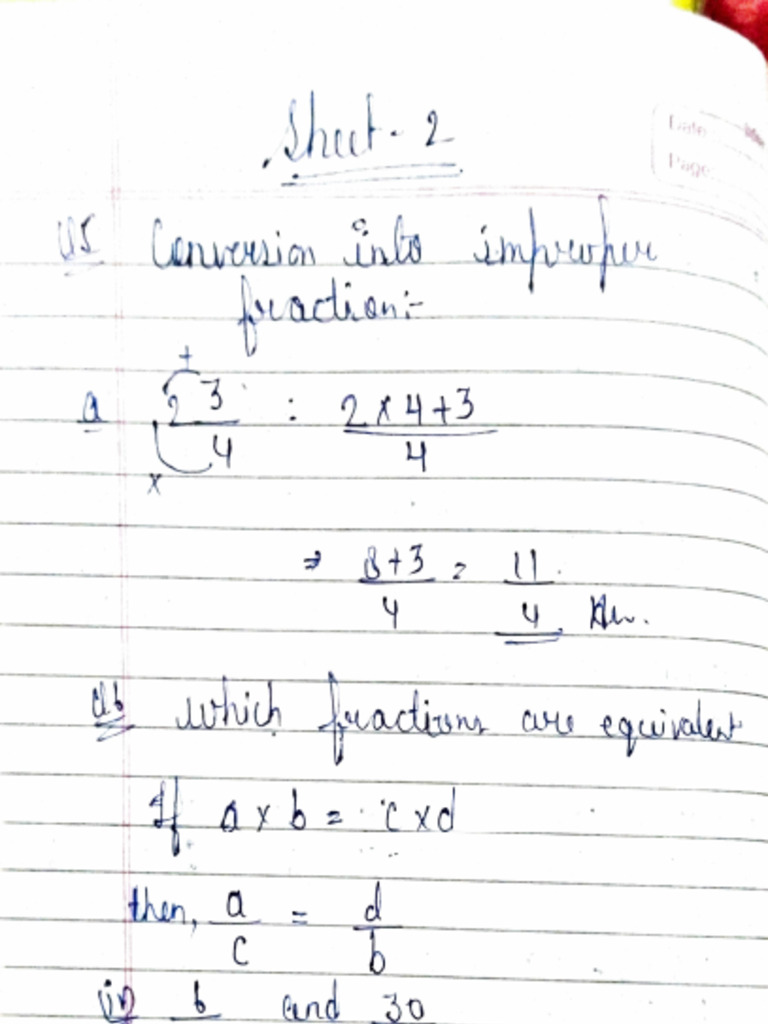 Sheet - 2
Date
Page
Q5 Conversion into improper
fraction:-
+
a 2 3/4 : 2 x 4 + 3 / 4
x
⇒ 8+3 / 4 = 11 / 4 Ans.
Q6 which fractions are equivalent
If a x b = c x d
then, a/c = d/b
6 and 30